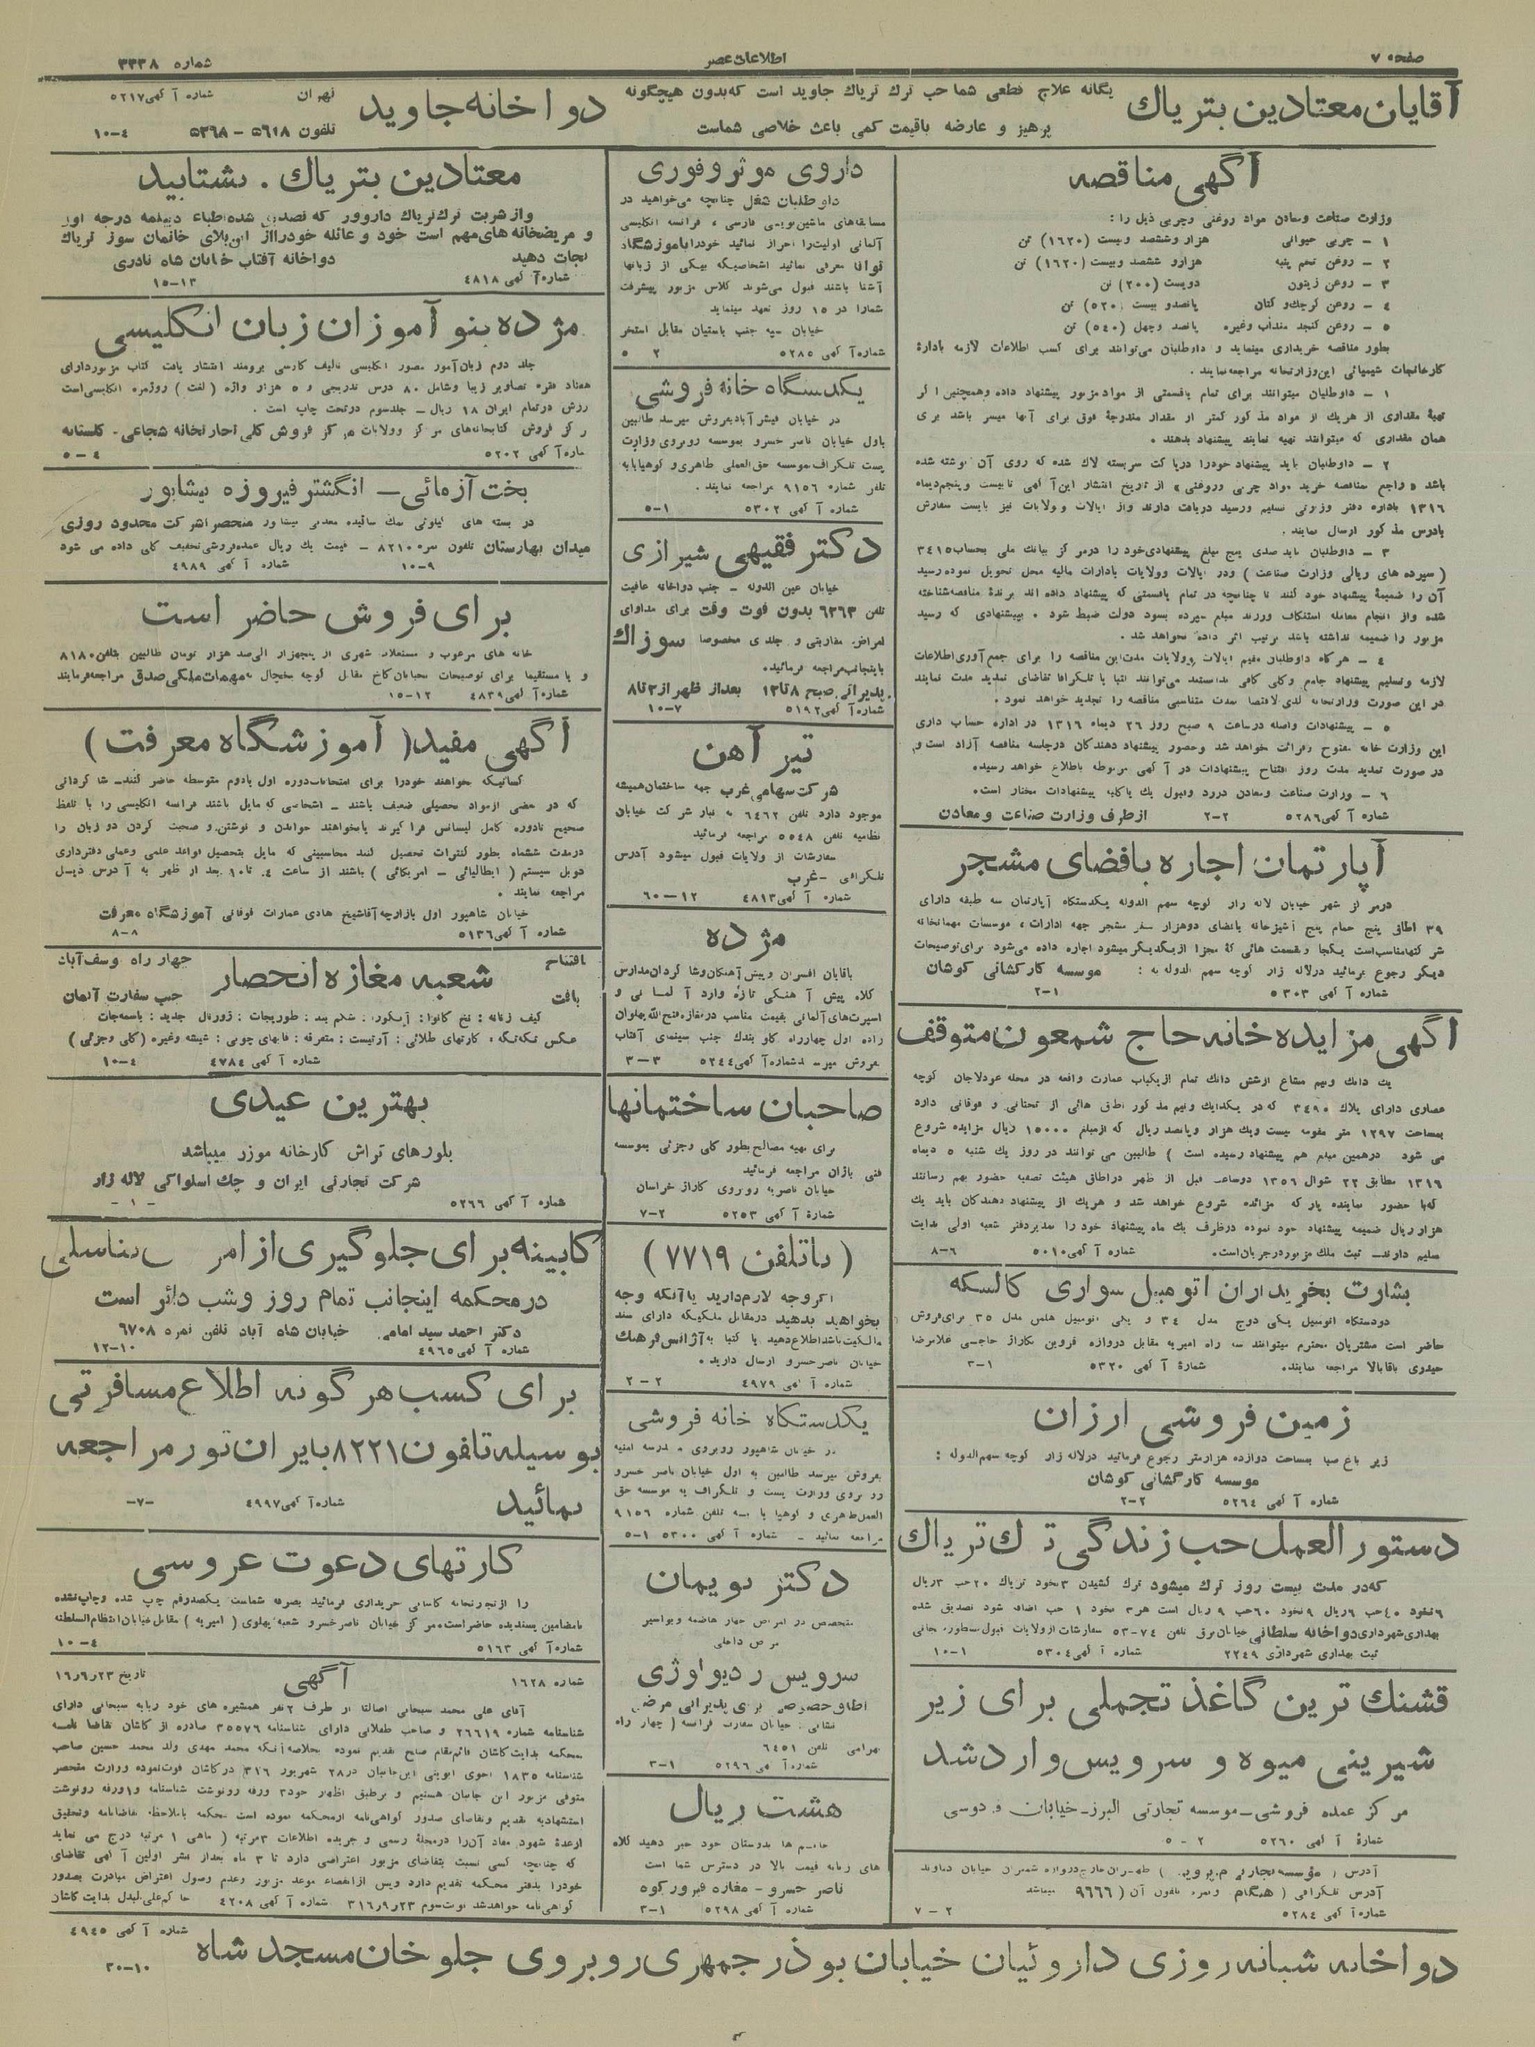 صفحه ۷
اطلاعات عصر
شماره ۳۳۳۸
آقایان معتادین بتریاك
یگانه علاج قطعی شما حب ترك تریاك جاوید است که بدون هیچگونه
پرهیز و عارضه باقیمت کمی باعث خلاصی شماست
دواخانه جاوید
تهران
تلفون ۵۶۱۸ - ۵۳۶۸
شماره آگهی ۵۲۱۷
۱۰-۴
آگهی مناقصه
وزارت صناعت ومعادن مواد روغنی وچربی ذیل را :
۱ - چربی حیوانی هزار وششصد وبیست (۱۶۲۰) تن
۲ - روغن تخم پنبه هزارو ششصد وبیست (۱۶۲۰) تن
۳ - روغن زیتون دویست (۲۰۰) تن
۴ - روغن کرچك و کتان پانصدو بیست (۵۲۰) تن
۵ - روغن کنجد منداب وغیره پانصد وچهل (۵۴۰) تن
بطور مناقصه خریداری مینماید و داوطلبان می‌توانند برای کسب اطلاعات لازمه بادارهٔ
کارخانجات شیمیائی این‌وزارتخانه مراجعه نمایند .
۱ - داوطلبان میتوانند برای تمام یاقسمتی از مواد مزبور پیشنهاد داده وهمچنین اگر
تهیهٔ مقداری از هریك از مواد مذکور کمتر از مقدار مندرجهٔ فوق برای آنها میسر باشد برای
همان مقداری که میتوانند تهیه نمایند پیشنهاد بدهند .
۲ - داوطلبان باید پیشنهاد خودرا درپاکت سربسته لاك شده که روی آن نوشته شده
باشد « راجع بمناقصه خرید مواد چربی وروغنی » از تاریخ انتشار این آگهی تابیست وپنجم دیماه
۱۳۱۶ باداره دفتر وزارتی تسلیم ورسید دریافت دارند واز ایالات وولایات نیز بایست سفارش
بآدرس مذکور ارسال نمایند .
۳ - داوطلبان باید صدی پنج مبلغ پیشنهادی‌خود را درمرکز ببانك ملی بحساب ۳۴۱۵
( سپرده های ریالی وزارت صناعت ) ودر ایالات وولایات بادارات مالیه محل تحویل نموده رسید
آن را ضمیمهٔ پیشنهاد خود کنند تا چنانچه در تمام یاقسمتی که پیشنهاد داده اند برندهٔ مناقصه شناخته
شده واز انجام معامله استنکاف ورزند مبلغ سپرده بسود دولت ضبط شود . بپیشنهادی که رسید
مزبور را ضمیمه نداشته باشد ترتیب اثر داده نخواهد شد .
۴ - هرگاه داوطلبان مقیم ایالات وولایات مدت این مناقصه را برای جمع آوری‌اطلاعات
لازمه وتسلیم پیشنهاد جامع وکلی کافی ندانستند می‌توانند کتبا یا تلگرافا تقاضای تمدید مدت نمایند
در این صورت وزارتخانه لدی‌الاقتضا بمدت متناسبی مناقصه را تجدید خواهد نمود .
۵ - پیشنهادات واصله درساعت ۹ صبح روز ۲۶ دیماه ۱۳۱۶ در اداره حساب داری
این وزارت خانه مفتوح وقرائت خواهد شد وحضور پیشنهاد دهندگان درجلسه مناقصه آزاد است و
در صورت تمدید مدت روز افتتاح پیشنهادات در آگهی مربوطه باطلاع خواهد رسید .
۶ - وزارت صناعت ومعادن دررد وقبول یك یاکلیه پیشنهادات مختار است .
شماره آگهی ۵۲۸۶ ۲-۲ ازطرف وزارت صناعت و معادن
آپارتمان اجاره بافضای مشجر
درمرکز شهر خیابان لاله زار کوچه سهم الدوله یکدستگاه آپارتمان سه طبقه دارای
۳۹ اطاق پنج حمام پنج آشپزخانه بافضای دوهزار متر مشجر جهه ادارات ، موسسات مهمانخانه
شرکتها مناسب‌است یکجا وبقسمت هائی که مجزا ازیکدیگر میشود اجاره داده می‌شود برای توضیحات
دیگر رجوع فرمائید درلاله زار کوچه سهم الدوله به : موسسه کارگشائی کوشان
شماره آگهی ۵۳۰۳ ۲-۱
آگهی مزایده خانه حاج شمعون متوقف
یك دانك ونیم مشاع ازشش دانك تمام ازیکباب عمارت واقعه در محله عودلاجان کوچه
عصاری دارای پلاك ۳۴۹۰ که در یکدانك ونیم مذکور اطاق هائی از تحتانی و فوقانی دارد
بمساحت ۱۲۹۷ متر مقومه بیست ویك هزار وپانصد ریال که ازمبلغ ۱۵۰۰۰ ریال مزایده شروع
می شود درهمین مبلغ هم پیشنهاد رسیده است ) طالبین می توانند در روز یك شنبه ۵ دیماه
۱۳۱۶ مطابق ۲۲ شوال ۱۳۵۶ دوساعت قبل از ظهر دراطاق هیئت تصفیه حضور بهم رسانند
که‌با حضور نماینده پارکه مزائده شروع خواهد شد و هریك از پیشنهاد دهندگان باید یك
هزار ریال ضمیمه پیشنهاد خود نموده درظرف یك ماه پیشنهاد خود را بمدیردفتر شعبه اولی بدایت
تسلیم دارند - ثبت ملك مزبور درجریان است . شماره آگهی ۵۰۱۰ ۸-۶
بشارت بخریداران اتومبیل سواری کالسکه
دودستگاه اتومبیل یکی دوج مدل ۳۴ و یکی اتومبیل هلمن مدل ۳۵ برای فروش
حاضر است مشتریان محترم میتوانند سه راه امیریه مقابل دروازه قزوین بگاراژ حاجی غلامرضا
حیدری باقابالا مراجعه نمایند . شمارهٔ آگهی ۵۳۲۰ ۳-۱
زمین فروشی ارزان
زیر باغ صبا بمساحت دوازده هزارمتر رجوع فرمائید درلاله زار کوچه سهم‌الدوله :
موسسه کارگشائی کوشان
شماره آگهی ۵۲۶۴ ۲-۲
دستورالعمل حب زندگی ترك تریاك
که‌در مدت بیست روز ترك میشود ترك کشیدن ۳نخود تریاك ۲۰حب ۳ریال
۶نخود ۴۰حب ۶ریال ۹نخود ۶۰حب ۹ریال است هر ۳ نخود ۱ حب اضافه شود تصدیق شده
بهداری شهرداری دواخانه سلطانی خیابان برق تلفن ۷۴-۵۳ سفارشات ازولایات قبول
ثبت بهداری شهرداری ۲۲۴۹ شماره آگهی ۵۳۰۴ ۱۰-۱
قشنك ترین کاغذ تجملی برای زیر
شیرینی میوه و سرویس واردشد
مرکز عمده فروشی - موسسه تجارتی البرز - خیابان فردوسی
شمارهٔ آگهی ۵۲۶۰ ۵ - ۲
شماره آگهی ۵۲۸۴ ۷ - ۲
داروی موثر وفوری
داوطلبان شغل چنانچه می‌خواهید در
مسابقه‌های ماشین‌نویسی فارسی ، فرانسه انگلیسی
آلمانی اولیت‌را احراز نمائید خودرا باموزشگاه
توانا معرفی نمائید اشخاصیکه بیکی از زبانها
آشنا باشند قبول می‌شوند کلاس مزبور پیشرفت
شمارا در ۱۵ روز تعهد مینماید
خیابان سپه جنب باستیان مقابل استخر
شماره آگهی ۵۲۸۵ ۵ ۲
یکدستگاه خانه فروشی
در خیابان فیشرآباد بفروش میرسد طالبین
باول خیابان ناصر خسرو بموسسه روبروی وزارت
پست تلگراف موسسه حق‌العملی طاهری و کوهپایه
تلفن شماره ۹۱۵۶ مراجعه نمایند .
شماره آگهی ۵۳۰۲ ۵-۱
دکتر فقیهی شیرازی
خیابان عین الدوله - جنب دواخانه عافیت
تلفن ۶۳۶۳ بدون فوت وقت برای مداوای
امراض مقاربتی و جلدی مخصوصا سوزاك
باینجانب مراجعه فرمائید .
پذیرائی صبح ۸ تا ۱۲ بعداز ظهر از ۳ تا ۸
شماره آگهی ۵۱۹۲ ۱۰-۷
تیر آهن
شرکت سهامی غرب جهه ساختمان همیشه
موجود دارد تلفن ۶۴۶۲ به انبار شرکت خیابان
نظامیه تلفن ۵۵۴۸ مراجعه فرمائید
سفارشات از ولایات قبول میشود آدرس
تلگرافی - غرب
شماره آگهی ۴۸۱۳ ۶۰-۱۲
مژده
باقایان افسران وپیش آهنگان وشاگردان مدارس
کلاه پیش آهنگی تازه وارد آلمانی و
اسپرت‌های آلمانی بقیمت مناسب درمغازه فتح الله پهلوان
زاده اول چهارراه کلوبندك جنب سینمای آفتاب
بفروش میرسد شماره آگهی ۵۲۴۴ ۳-۳
صاحبان ساختمانها
برای تهیه مصالح بطور کلی وجزئی بموسسه
فنی باژان مراجعه فرمائید
خیابان ناصریه روبروی گاراژ خراسان
شماره آگهی ۵۲۵۳ ۷-۲
( باتلفن ۷۷۱۹ )
اگروجه لازم‌دارید یاآنکه وجه
بخواهید بدهید درمقابل ملکیکه دارای سند
مالکیت باشد اطلاع دهید یا کتبا به آژانس فرهنك
خیابان ناصرخسرو ارسال دارید .
شماره آگهی ۴۹۷۹ ۲ - ۲
یکدستگاه خانه فروشی
در خیابان شاهپور روبروی مدرسه امنیه
بفروش میرسد طالبین به اول خیابان ناصر خسرو
روبروی وزارت پست و تلگراف به موسسه حق
العمل طاهری و کوهپایه تلفن شماره ۹۱۵۶
مراجعه نمائید - شماره آگهی ۵۳۰۰ ۵-۱
دکتر بویمان
سرویس رادیولوژی
نشانی : خیابان سفارت فرانسه ( چهار راه
تلفن ۶۴۵۱
شماره آگهی ۵۲۹۶ ۳-۱
هشت ریال
خانم ها بدوستان خود خبر دهید کلاه
های زنانه قیمت بالا در دسترس شما است
ناصر خسرو - مغازه فیروزکوه
شماره آگهی ۵۲۹۸ ۳-۱
معتادین بتریاك . بشتابید
واز شربت ترك‌تریاك داروور که تصدیق شده‌اطباء دیپلمه درجه اول
و مریضخانه‌های مهم است خود و عائله خودرااز این‌بلای خانمان سوز تریاك
نجات دهید دواخانه آفتاب خیابان شاه نادری
شماره آگهی ۴۸۱۸ ۱۵-۱۳
مژده بنو آموزان زبان انگلیسی
جلد دوم زبان‌آموز مصور انگلیسی تالیف کارسی برومند انتشار یافت کتاب مزبوردارای
هفتاد فقره تصاویر زیبا وشامل ۸۰ درس تدریجی و ۵ هزار واژه ( لغت ) روزمره انگلیسی‌است
ارزش درتمام ایران ۱۸ ریال - جلدسوم درتحت چاپ است .
مرکز فروش کتابخانه‌های مرکز وولایات
شماره آگهی ۵۲۰۲ ۵-۴
بخت آزمائی - انگشتر فیروزه نیشابور
میدان بهارستان تلفون نمره ۸۲۱۰ - قیمت یك ریال عمده‌فروشی تخفیف کلی داده می شود
شماره آگهی ۴۹۸۹ ۱۰-۹
برای فروش حاضر است
خانه های مرغوب و مستغلات شهری از پنجهزار الی صد هزار تومان طالبین بتلفن ۸۱۸۰
و یا مستقیما برای توضیحات بخیابان کاخ مقابل کوچه یخچال بمهمات ملکی صدق مراجعه فرمایند
شماره آگهی ۴۸۳۹ ۱۵-۱۲
آگهی مفید ( آموزشگاه معرفت )
کسانیکه بخواهند خودرا برای امتحانات دوره اول یادوم متوسطه حاضر کنند - شاگردانی
که در بعضی ازمواد تحصیلی ضعیف باشند - اشخاصی که مایل باشند فرانسه انگلیسی را با تلفظ
صحیح تادوره کامل لیسانس فراگیرند یابخواهند خواندن و نوشتن و صحبت کردن دو زبان را
درمدت ششماه بطور کنترات تحصیل کنند محاسبینی که مایل بتحصیل قواعد علمی وعملی دفترداری
دوبل سیستم ( ایطالیائی - امریکائی ) باشند از ساعت ۴ تا ۱۰ بعد از ظهر به آدرس ذیل
مراجعه نمایند .
خیابان شاهپور اول بازارچه آقاشیخ هادی عمارات فوقانی آموزشگاه معرفت
شماره آگهی ۵۱۳۶ ۸-۸
شعبه مغازه انحصار
افتتاح یافت
چهار راه یوسف‌آباد
جنب سفارت آلمان
عکس تکه‌تکه ، کارتهای طلائی : آرتیست : متفرقه : قابهای چوبی : شیشه وغیره ( کلی وجزئی )
شماره آگهی ۴۷۸۴ ۱۰-۴
بهترین عیدی
بلورهای تراش کارخانه موزر میباشد
شرکت تجارتی ایران و چك اسلواکی لاله زار
شماره آگهی ۵۲۶۶ - ۱ -
کابینه برای جلوگیری از امراض تناسلی
درمحکمه اینجانب تمام روز وشب دائر است
دکتر احمد سید امامی خیابان شاه آباد تلفن نمره ۶۷۰۸
شماره آگهی ۴۹۶۵ ۱۲-۱۰
برای کسب هرگونه اطلاع مسافرتی
بوسیله تلفون ۸۲۲۱ بایران تور مراجعه
نمائید
شماره آگهی ۴۹۹۷ -۷-
کارتهای دعوت عروسی
را ازتجارتخانه کاشانی خریداری فرمائید بصرفه شماست یکصدرقم چاپ شده وچاپ‌نشده
بامضامین پسندیده حاضراست - مرکز خیابان ناصرخسرو شعبه پهلوی ( امیریه ) مقابل خیابان انتظام السلطنه
شماره آگهی ۵۱۶۳ ۱۰-۴
شماره ۱۶۲۸ آگهی تاریخ ۱۶/۹/۲۳
آقای علی محمد سبحانی اصالتا از طرف ۲نفر همشیره های خود ربابه سبحانی دارای
شناسنامه شماره ۲۶۶۱۹ و صاحب طغلائی دارای شناسنامه ۳۵۵۷۶ صادره از کاشان تقاضا نامه
بمحکمه بدایت کاشان قائم‌مقام صلح تقدیم نموده بخلاصه آنکه محمد مهدی ولد محمد حسین صاحب
شناسنامه ۱۸۳۵ اخوی ابوینی این‌جانبان در ۲۸ شهریور ۳۱۶ در کاشان فوت‌نموده ووارث منحصر
متوفی مزبور این جانبان هستیم و برطبق اظهار خود ۳ ورقه رونوشت شناسنامه و ۱ ورقه رونوشت
استشهادیه تقدیم وتقاضای صدور گواهی‌نامه ازمحکمه نموده است محکمه باملاحظه تقاضانامه وتحقیق
ازعدهٔ شهود مفاد آن‌را درمجلهٔ رسمی و جریده اطلاعات ۳مرتبه ( ماهی ۱ مرتبه درج می نماید
که چنانچه کسی نسبت بتقاضای مزبور اعتراضی دارد تا ۳ ماه بعداز نشر اولین آگهی تقاضای
خودرا بدفتر محکمه تقدیم دارد وپس ازانقضاء موعد مزبور وعدم وصول اعتراض مبادرت بصدور
گواهی‌نامه خواهدشد نوبت‌سوم ۳۱۶/۹/۲۳ شماره آگهی ۴۲۰۸ حاکم علی‌البدل بدایت کاشان
دواخانه شبانه روزی داروئیان خیابان بوذرجمهری روبروی جلوخان مسجد شاه
شماره آگهی ۴۹۴۵
۳۰-۱۰